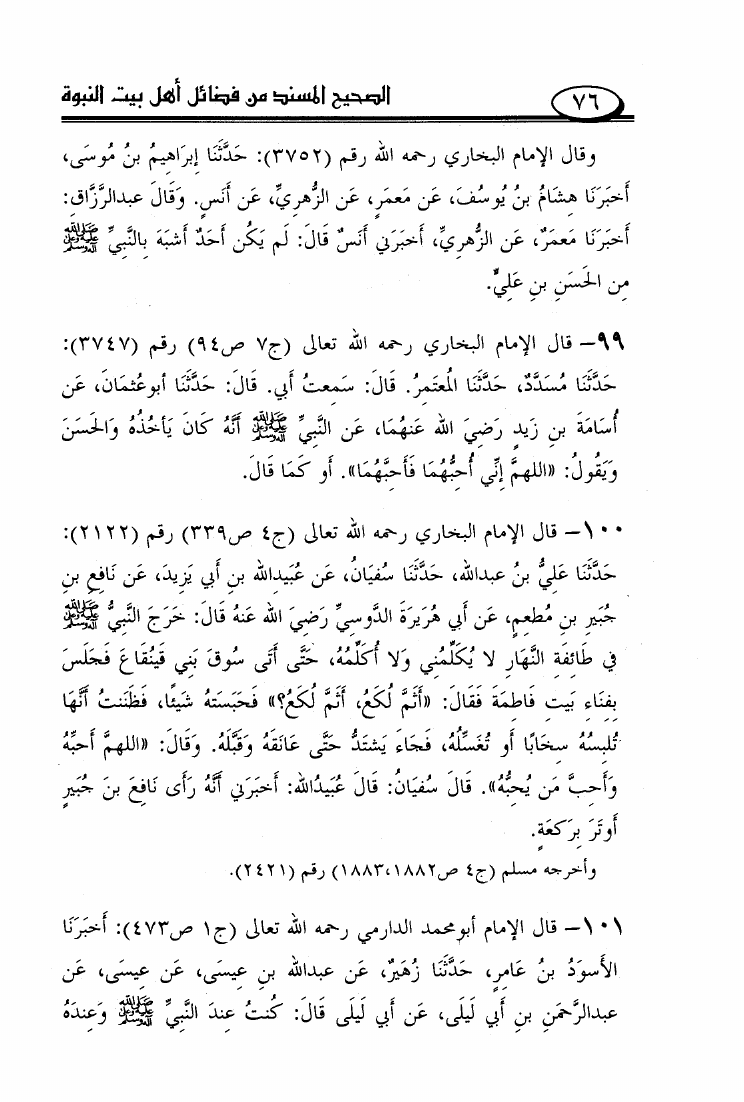 ٧٦
الصحيح المسند من فضائل أهل بيت النبوة
وقال الإمام البخاري رحمه الله رقم (٣٧٥٢): حَدَّثَنَا إبرَاهِيمُ بنُ مُوسَى،
أَخبَرَنَا هِشَامُ بنُ يُوسُفَ، عَن مَعمَرٍ، عَن الزُّهرِيِّ، عَن أَنَسٍ. وَقَالَ عبدالرَّزَّاقِ:
أَخبَرَنَا مَعمَرٌ، عَن الزُّهرِيِّ، أَخبَرَنِي أَنَسٌ قَالَ: لَم يَكُن أَحَدٌ أَشبَهَ بِالنَّبِيِّ ﷺ
مِن الحَسَنِ بنِ عَلِيٍّ.
٩٩- قال الإمام البخاري رحمه الله تعالى (ج٧ ص٩٤) رقم (٣٧٤٧):
حَدَّثَنَا مُسَدَّدٌ، حَدَّثَنَا المُعتَمِرُ. قَالَ: سَمِعتُ أَبِي. قَالَ: حَدَّثَنَا أبوعُثمَانَ، عَن
أُسَامَةَ بنِ زَيدٍ رَضِيَ الله عَنهُمَا، عَن النَّبِيِّ ﷺ أَنَّهُ كَانَ يَأخُذُهُ وَالحَسَنَ
وَيَقُولُ: «اللهمَّ إِنِّي أُحِبُّهُمَا فَأَحِبَّهُمَا». أَو كَمَا قَالَ.
١٠٠- قال الإمام البخاري رحمه الله تعالى (ج٤ ص٣٣٩) رقم (٢١٢٢):
حَدَّثَنَا عَلِيُّ بنُ عبدالله، حَدَّثَنَا سُفيَانُ، عَن عُبَيدِالله بنِ أَبِي يَزِيدَ، عَن نَافِعِ بنِ
جُبَيرِ بنِ مُطعِمٍ، عَن أَبِي هُرَيرَةَ الدَّوسِيِّ رَضِيَ الله عَنهُ قَالَ: خَرَجَ النَّبِيُّ ﷺ
فِي طَائِفَةِ النَّهَارِ لا يُكَلِّمُنِي وَلا أُكَلِّمُهُ، حَتَّى أَتَى سُوقَ بَنِي قَينُقَاعَ فَجَلَسَ
بِفِنَاءِ بَيتِ فَاطِمَةَ فَقَالَ: «أَثَمَّ لُكَعُ، أَثَمَّ لُكَعُ؟» فَحَبَسَتهُ شَيئًا، فَظَنَنتُ أَنَّهَا
تُلبِسُهُ سِخَابًا أَو تُغَسِّلُهُ، فَجَاءَ يَشتَدُّ حَتَّى عَانَقَهُ وَقَبَّلَهُ. وَقَالَ: «اللهمَّ أَحِبَّهُ
وَأَحِبَّ مَن يُحِبُّهُ». قَالَ سُفيَانُ: قَالَ عُبَيدُالله: أَخبَرَنِي أَنَّهُ رَأَى نَافِعَ بنَ جُبَيرٍ
أَوتَرَ بِرَكعَةٍ.
وأخرجه مسلم (ج٤ ص١٨٨٢،١٨٨٣) رقم (٢٤٢١).
١٠١- قال الإمام أبومحمد الدارمي رحمه الله تعالى (ج١ ص٤٧٣): أَخبَرَنَا
الأَسوَدُ بنُ عَامِرٍ، حَدَّثَنَا زُهَيرٌ، عَن عبدالله بنِ عِيسَى، عَن عِيسَى، عَن
عبدالرَّحمَنِ بنِ أَبِي لَيلَى، عَن أَبِي لَيلَى قَالَ: كُنتُ عِندَ النَّبِيِّ ﷺ وَعِندَهُ